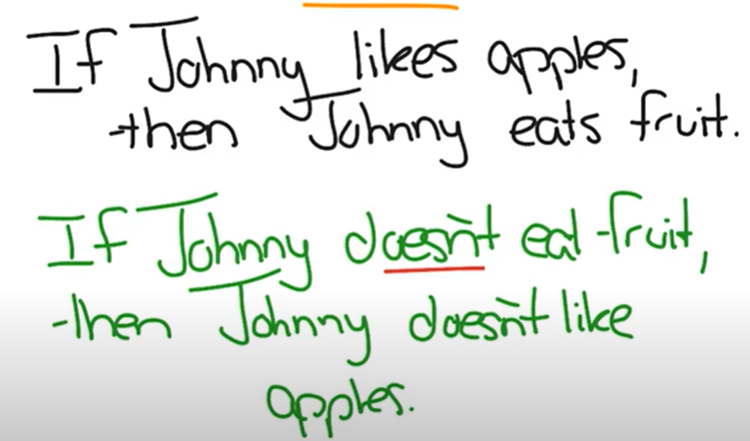 If Johnny likes apples,
then Johnny eats fruit.
If Johnny doesn't eat fruit,
then Johnny doesn't like
apples.